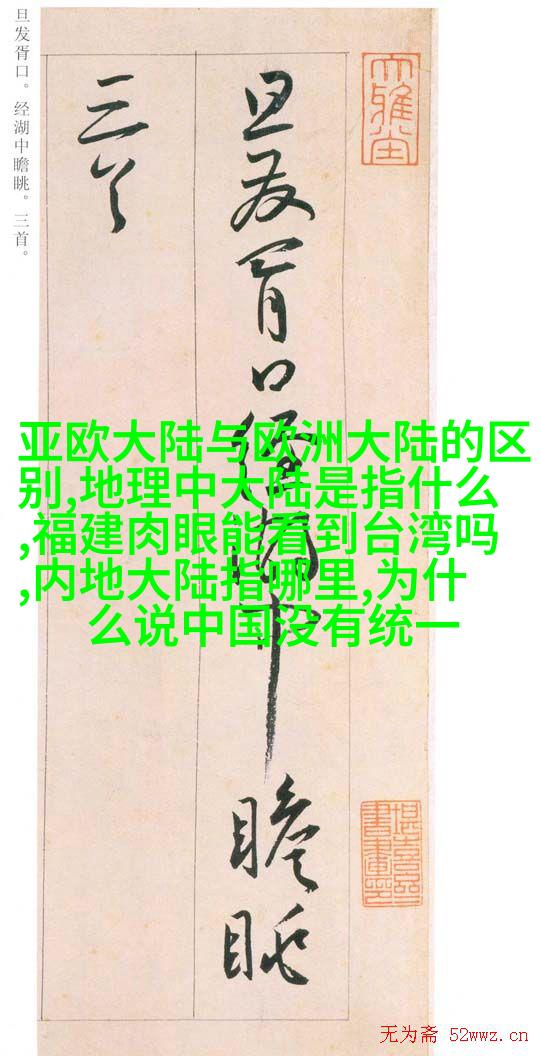 旦发胥口。经湖中瞻眺。三首。
旦发胥口经湖中瞻眺
三首
大雅堂
亚欧大陆与欧洲大陆的区
别,地理中大陆是指什么
,福建肉眼能看到台湾吗
,内地大陆指哪里,为什
么说中国没有统一
无为斋 52wwz.cn